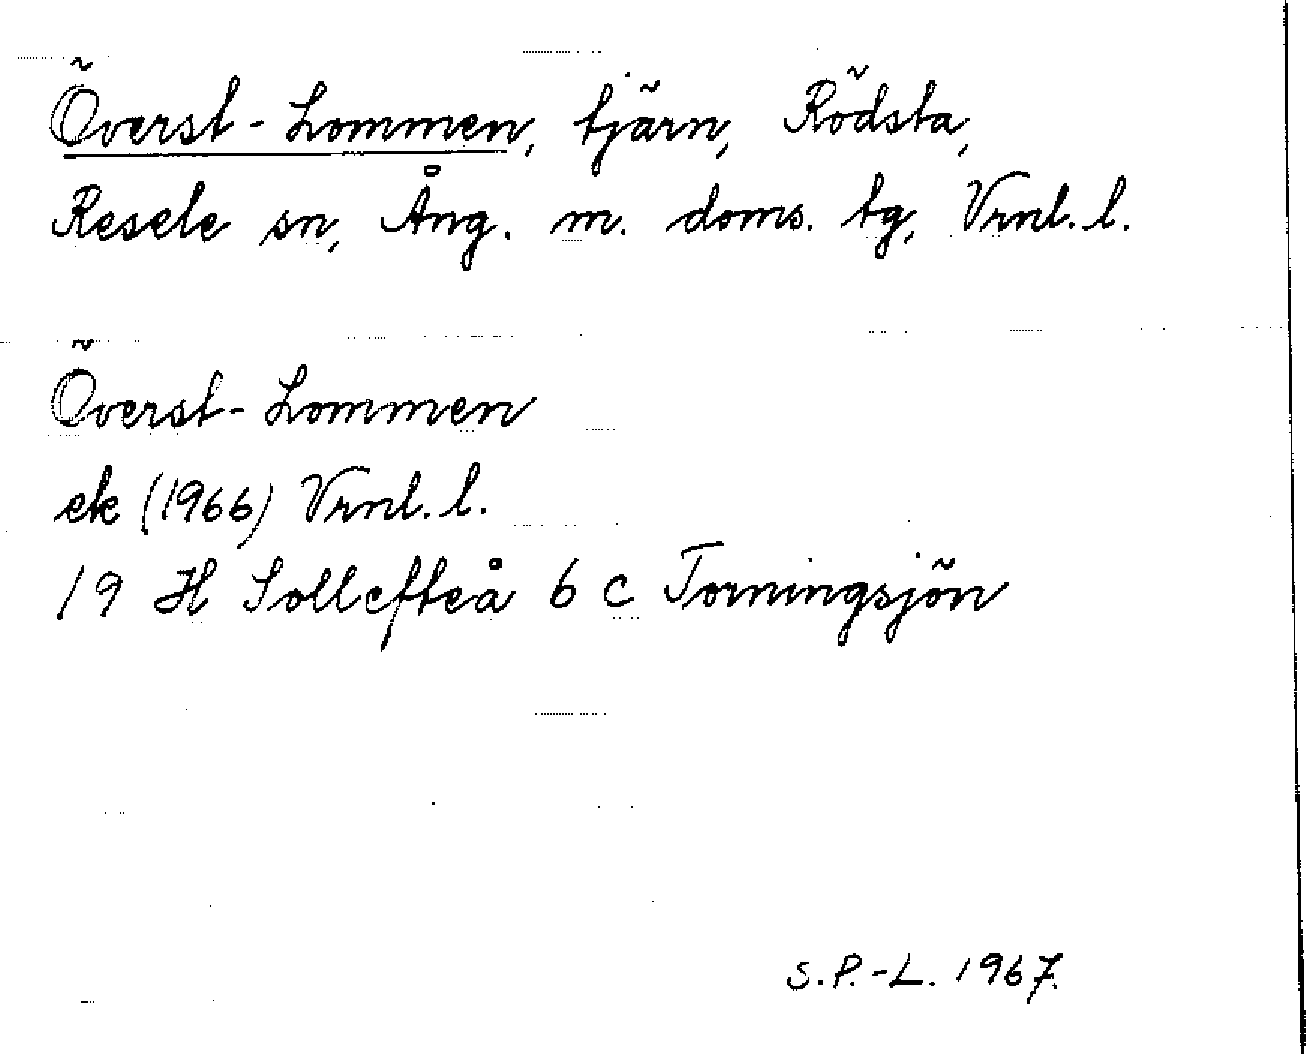 Överst-Lommen, tjärn, Rödsta,
Resele sn, Ång. m. doms. tg, Vrnl. l.
Överst-Lommen
ek (1966) Vrnl. l.
19 H Sollefteå 6 c Torningsjön
S.P.-L. 1967.